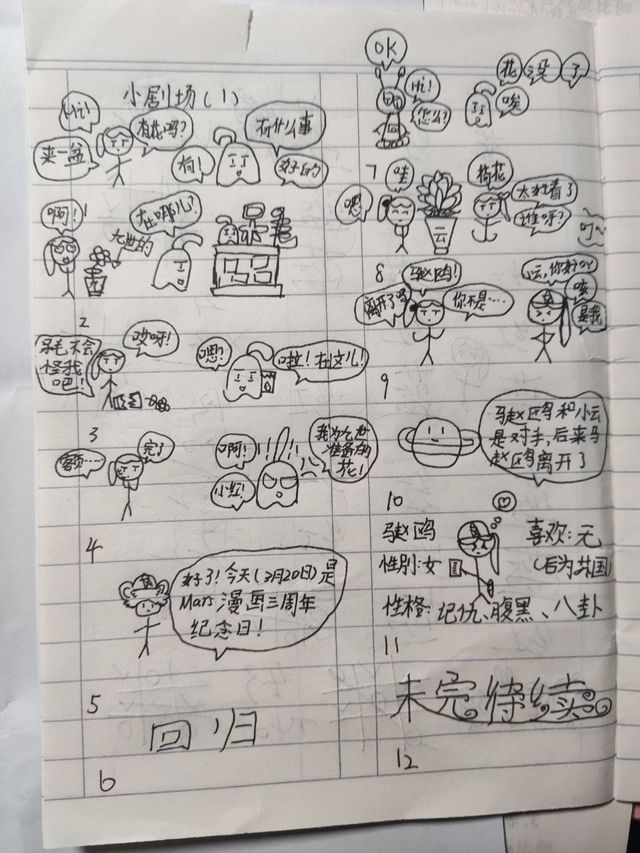 小剧场(1)
Hi!
有花吗?
来一盆
有!
有什么事
好的
啊!
在哪儿?
2
哎呀!
不会
怪我
吧!
嗯?
啦!在这儿!
3
额……
完了
啊!
小红!
!!
!!
花!
4
好了!今天(3月20日)是
Mars漫画三周年
纪念日!
5
回归
6
OK
Hi!
怎么?
花没了
唉
7
嗯
哇
云
荷花
太好看了
谁呀?
8
赵鸥!
离开了吗
你不是……
小云,你好呀
咳
是我
9
马赵鸥和小云
是对手,后来马
赵鸥离开了
10
马赵鸥
喜欢:无
性别:女
(后为共国)
性格:记仇、腹黑、八卦
11
未完待续
12